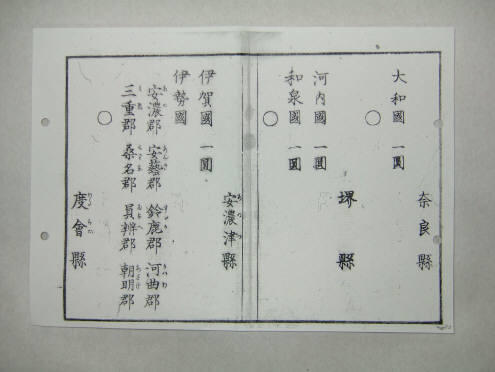 奈良縣
大和國 一圓
○
堺縣
河内國 一圓
和泉國 一圓
○
安濃津縣
伊賀國 一圓
伊勢國
安濃郡 安藝郡 鈴鹿郡 河曲郡
三重郡 桑名郡 員辨郡 朝明郡
○
度會縣